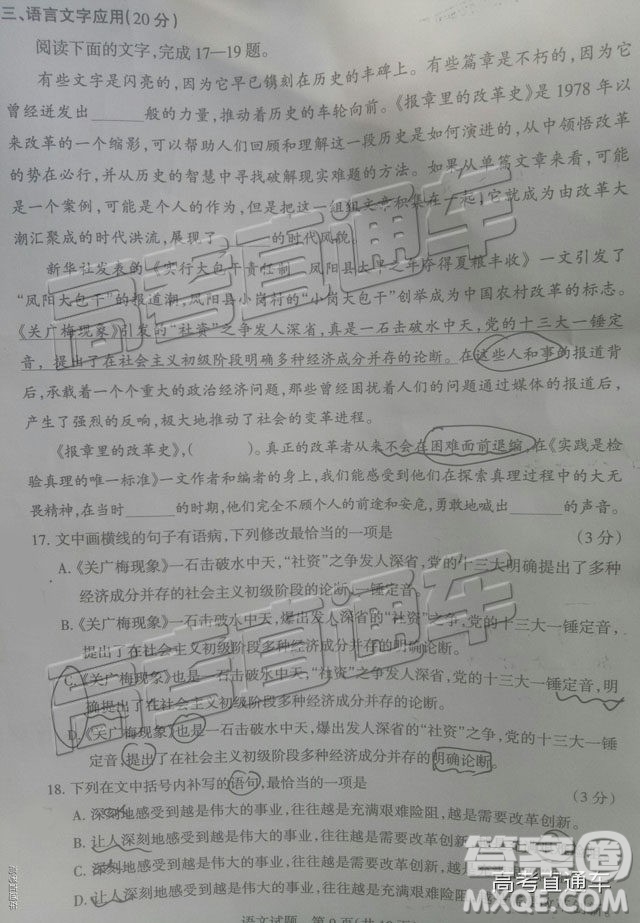 三、语言文字应用(20分)
阅读下面的文字,完成17—19题。
有些文字是闪亮的,因为它早已镌刻在历史的丰碑上。有些篇章是不朽的,因为它
曾经迸发出______般的力量,推动着历史的车轮向前。《报章里的改革史》是1978年以
来改革的一个缩影,可以帮助人们回顾和理解这一段历史是如何演进的,从中领悟改革
的势在必行,并从历史的智慧中寻找破解现实难题的方法。如果从单篇文章来看,可能
是一个案例,可能是个人的作为,但是把这一组组文章积集在一起,它就成为由改革大
潮汇聚成的时代洪流,展现了______的时代风貌。
新华社发表的《实行大包干责任制 凤阳县土旱之年夺得夏粮丰收》一文引发了
“凤阳大包干”的报道潮,凤阳县小岗村的“小岗大包干”创举成为中国农村改革的标志。
《关广梅现象》引发的“社资”之争发人深省,真是一石击破水中天,党的十三大一锤定
音,提出了在社会主义初级阶段明确多种经济成分并存的论断。在这些人和事的报道背
后,承载着一个个重大的政治经济问题,那些曾经困扰着人们的问题通过媒体的报道后,
产生了强烈的反响,极大地推动了社会的变革进程。
《报章里的改革史》,( )。真正的改革者从来不会在困难面前退缩,在《实践是检
验真理的唯一标准》一文作者和编者的身上,我们能感受到他们在探索真理过程中的大无
畏精神,在当时______的时期,他们完全不顾个人的前途和安危,勇敢地喊出______的声音。
17.文中画横线的句子有语病,下列修改最恰当的一项是 (3分)
A.《关广梅现象》一石击破水中天,“社资”之争发人深省,党的十三大明确提出了多种
经济成分并存的社会主义初级阶段的论断,一锤定音。
B.《关广梅现象》一石击破水中天,爆出发人深省的“社资”之争,党的十三大一锤定音,
提出了在社会主义初级阶段多种经济成分并存的明确论断。
C.《关广梅现象》也是一石击破水中天,“社资”之争发人深省,党的十三大一锤定音,明
确提出了在社会主义初级阶段多种经济成分并存的论断。
D.《关广梅现象》也是一石击破水中天,爆出发人深省的“社资”之争,党的十三大一锤
定音,提出了在社会主义初级阶段多种经济成分并存的明确论断。
18.下列在文中括号内补写的语句,最恰当的一项是 (3分)
A.深刻地感受到越是伟大的事业,往往越是充满艰难险阻,越是需要改革创新。
B.让人深刻地感受到越是伟大的事业,往往越是充满艰难险阻,越需要改革创新。
C.深刻地感受到越是伟大的事业,往往越是充满艰难险阻,
D.让人深刻地感受到越是伟大的事业,往往越是充满艰难险阻,
语文试题 第9页(共10页)
高考直通车
答案圈
高考直通车
MXQE.COM